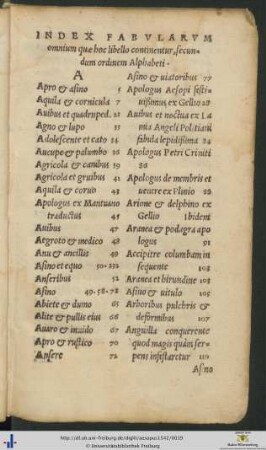 INDEX FABVLARVM
omnium quæ hoc libello continentur, secun-
dum ordinem Alphabeti.
A
Apro & asino 5
Aquila & cornicula 7
Auibus et quadruped. 21
Agno & lupo 37
Adolescente et cato 34
Aucupe & palumbo 26
Agricola & canibus 29
Agricola et gruibus 41
Aquila & coruo 43
Apologus ex Mantuano
traductus 45
Auibus 47
Aegroto & medico 48
Anu & ancillis 49
Asino et equo 50.252
Anseribus 52
Asino 49.58.78
Abiete & dumo 65
Alite & pullis eius 66
Auaro & inuido 67
Apro & rustico 70
Ansere 72
Asino & uiatoribus 77
Apologus Aesopi festi-
uissimus, ex Gellio 28
Auibus et noctua ex La
mia Angeli Politiani
fabula lepidissima 84
Apologus Petri Criniti
86
Apologus de membris et
uentre ex Plinio 22
Arione & delphino ex
Gellio Ibidem
Aranea & podagra apo
logus 91
Accipitre columbam in
sequente 103
Aranea et hirundine 105
Asino & uitulo 105
Arboribus pulchris &
deformibus 107
Anguilla conquerente
quod magis quàm ser-
pens infestaretur 110
Asino
http://dl.ub.uni-freiburg.de/diglit/aesopus1542/0019
© Universitätsbibliothek Freiburg
Baden-Württemberg